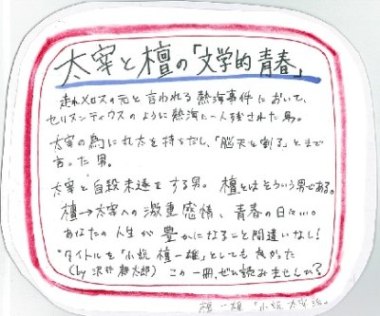 太宰と檀の「文学的青春」
走れメロスの元と言われる熱海事件において、
セリヌンティウスのように熱海に一人残された男。
太宰の為に刀を持ちだし、「脳天を割る」とまで
言った男。
太宰と自殺未遂をする男。檀とはそういう男である。
檀→太宰への激重感情、青春の日に…。
あなたの人生が豊かになること間違いなし!
*タイトルを「小説 檀一雄」としても良かった
(by 沢木耕太郎) この一冊、ぜひ読みませんか?
檀一雄『小説 太宰治』